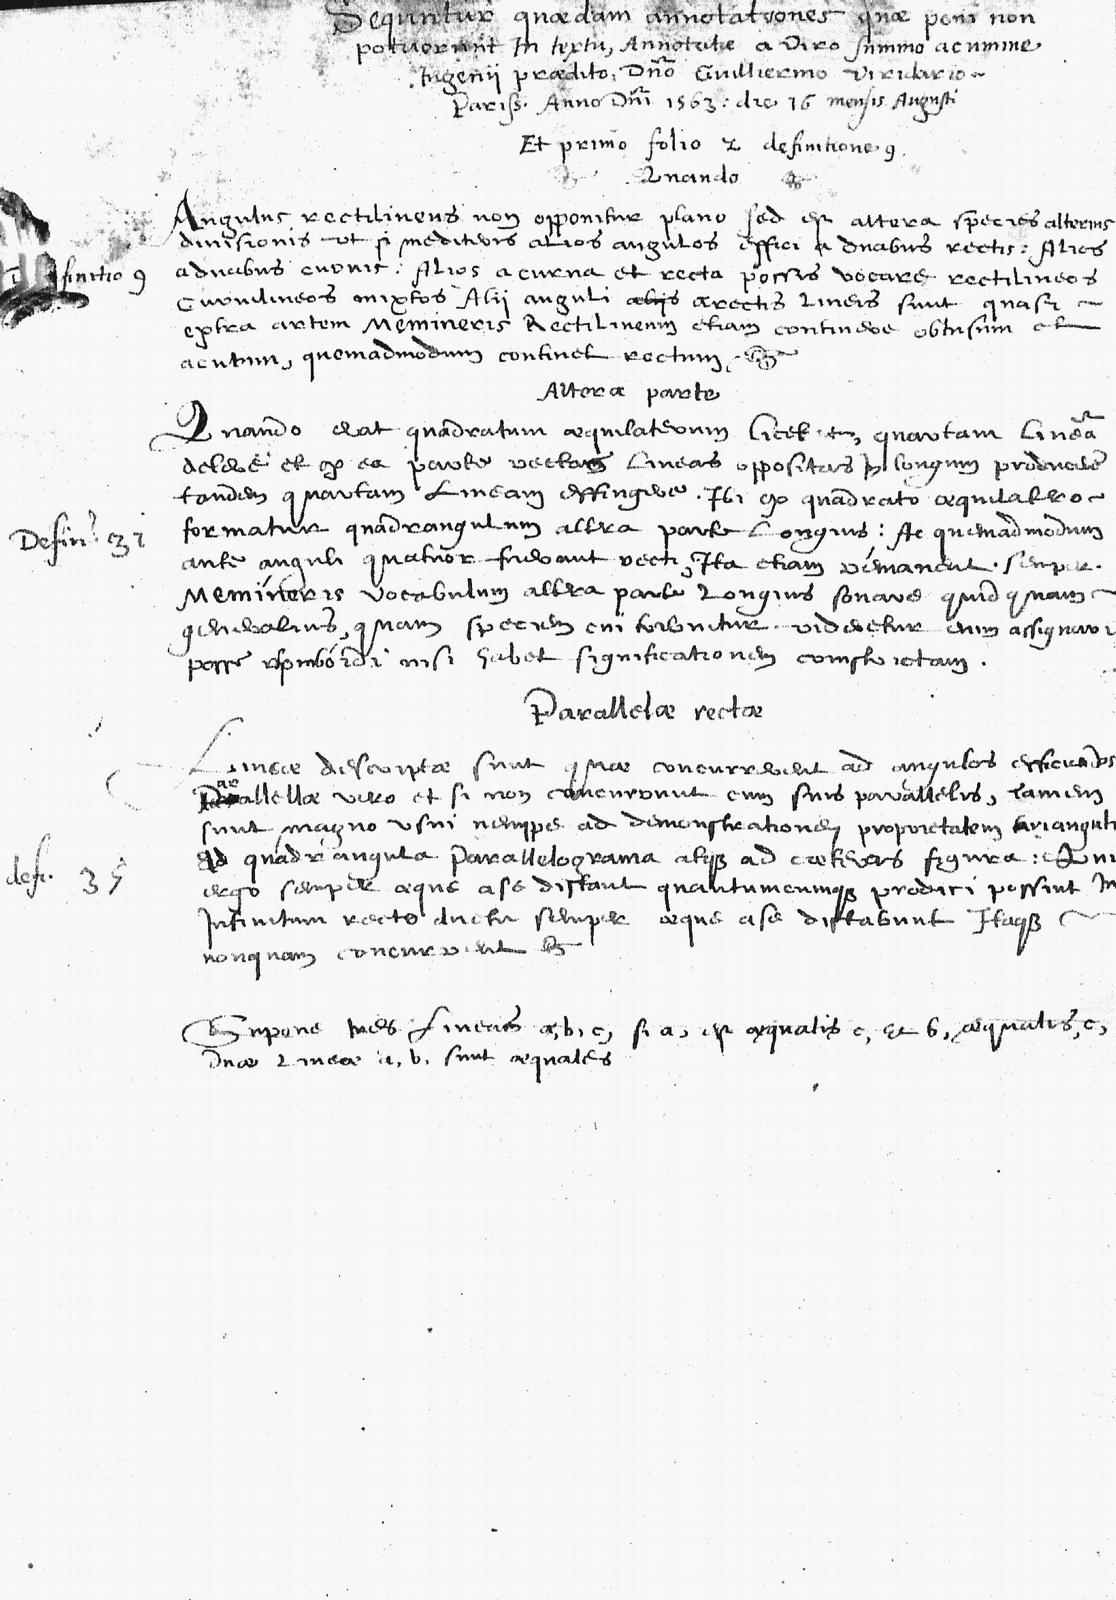 Sequntur quædam annotationes quæ poni non
potuerunt In textu, Annotatæ a Viro summo acumine
Ingenii prædito, Dño Guilliermo Viridario
Pariss. Anno Dñi 1563: die 16 mensis Augusti
Et primo folio 2 definitione 9
Quando
Angulus rectilineus non opponitur plano sed est altera species alterius
diuisionis ut si mediteris alios angulos effici a duabus rectis: Alios
a duabus curuis: Alios a curua et recta possis vocare rectilineos
finitio 9
Curuilineos mixtos Alij anguli a rectis Lineis sunt quasi
extra artem Memineris Rectilineum etiam continere obtusum et
acutum, quemadmodum continet rectum
Altera parte
Quando erat quadratum æquilaterum licet quartam Lineã
delere et ex ea parte rectas Lineas oppositas In longum producere
tandem quartam Lineam effingere. Ibi ex quadrato æquilatero
Defin. 31
formatur quadrangulum altera parte Longius: Ac quemadmodum
ante anguli quatuor fuerant recti, Ita etiam remanent. semper.
Memineris Vocabulum altera parte Longius sonare quid quam
generalius, quam speciem cui tribuitur videretur enim assignari
posse rhomboidi nisi habet significationem constrictam.
Parallelæ rectæ
Lineæ descriptæ sunt quæ concurrerent ad angulos efficiendos
Parallellæ vero et si non concurrunt cum suis parallelis, tamen
sunt magno usui nempe ad demonstrationem proprietatem trianguli
defi. 35
quadrangula Parallelograma atque ad cæteras figura: Qui
ergo semper æque a se distant quantumcumque produci possint In
Infinitum recto ductu semper æque a se distabunt Itaque
nonquam concurrent
Supone tres Lineas a, b, c, si a, est æqualis c, et b, æqualis, c,
duæ Lineæ a, b, sunt æquales